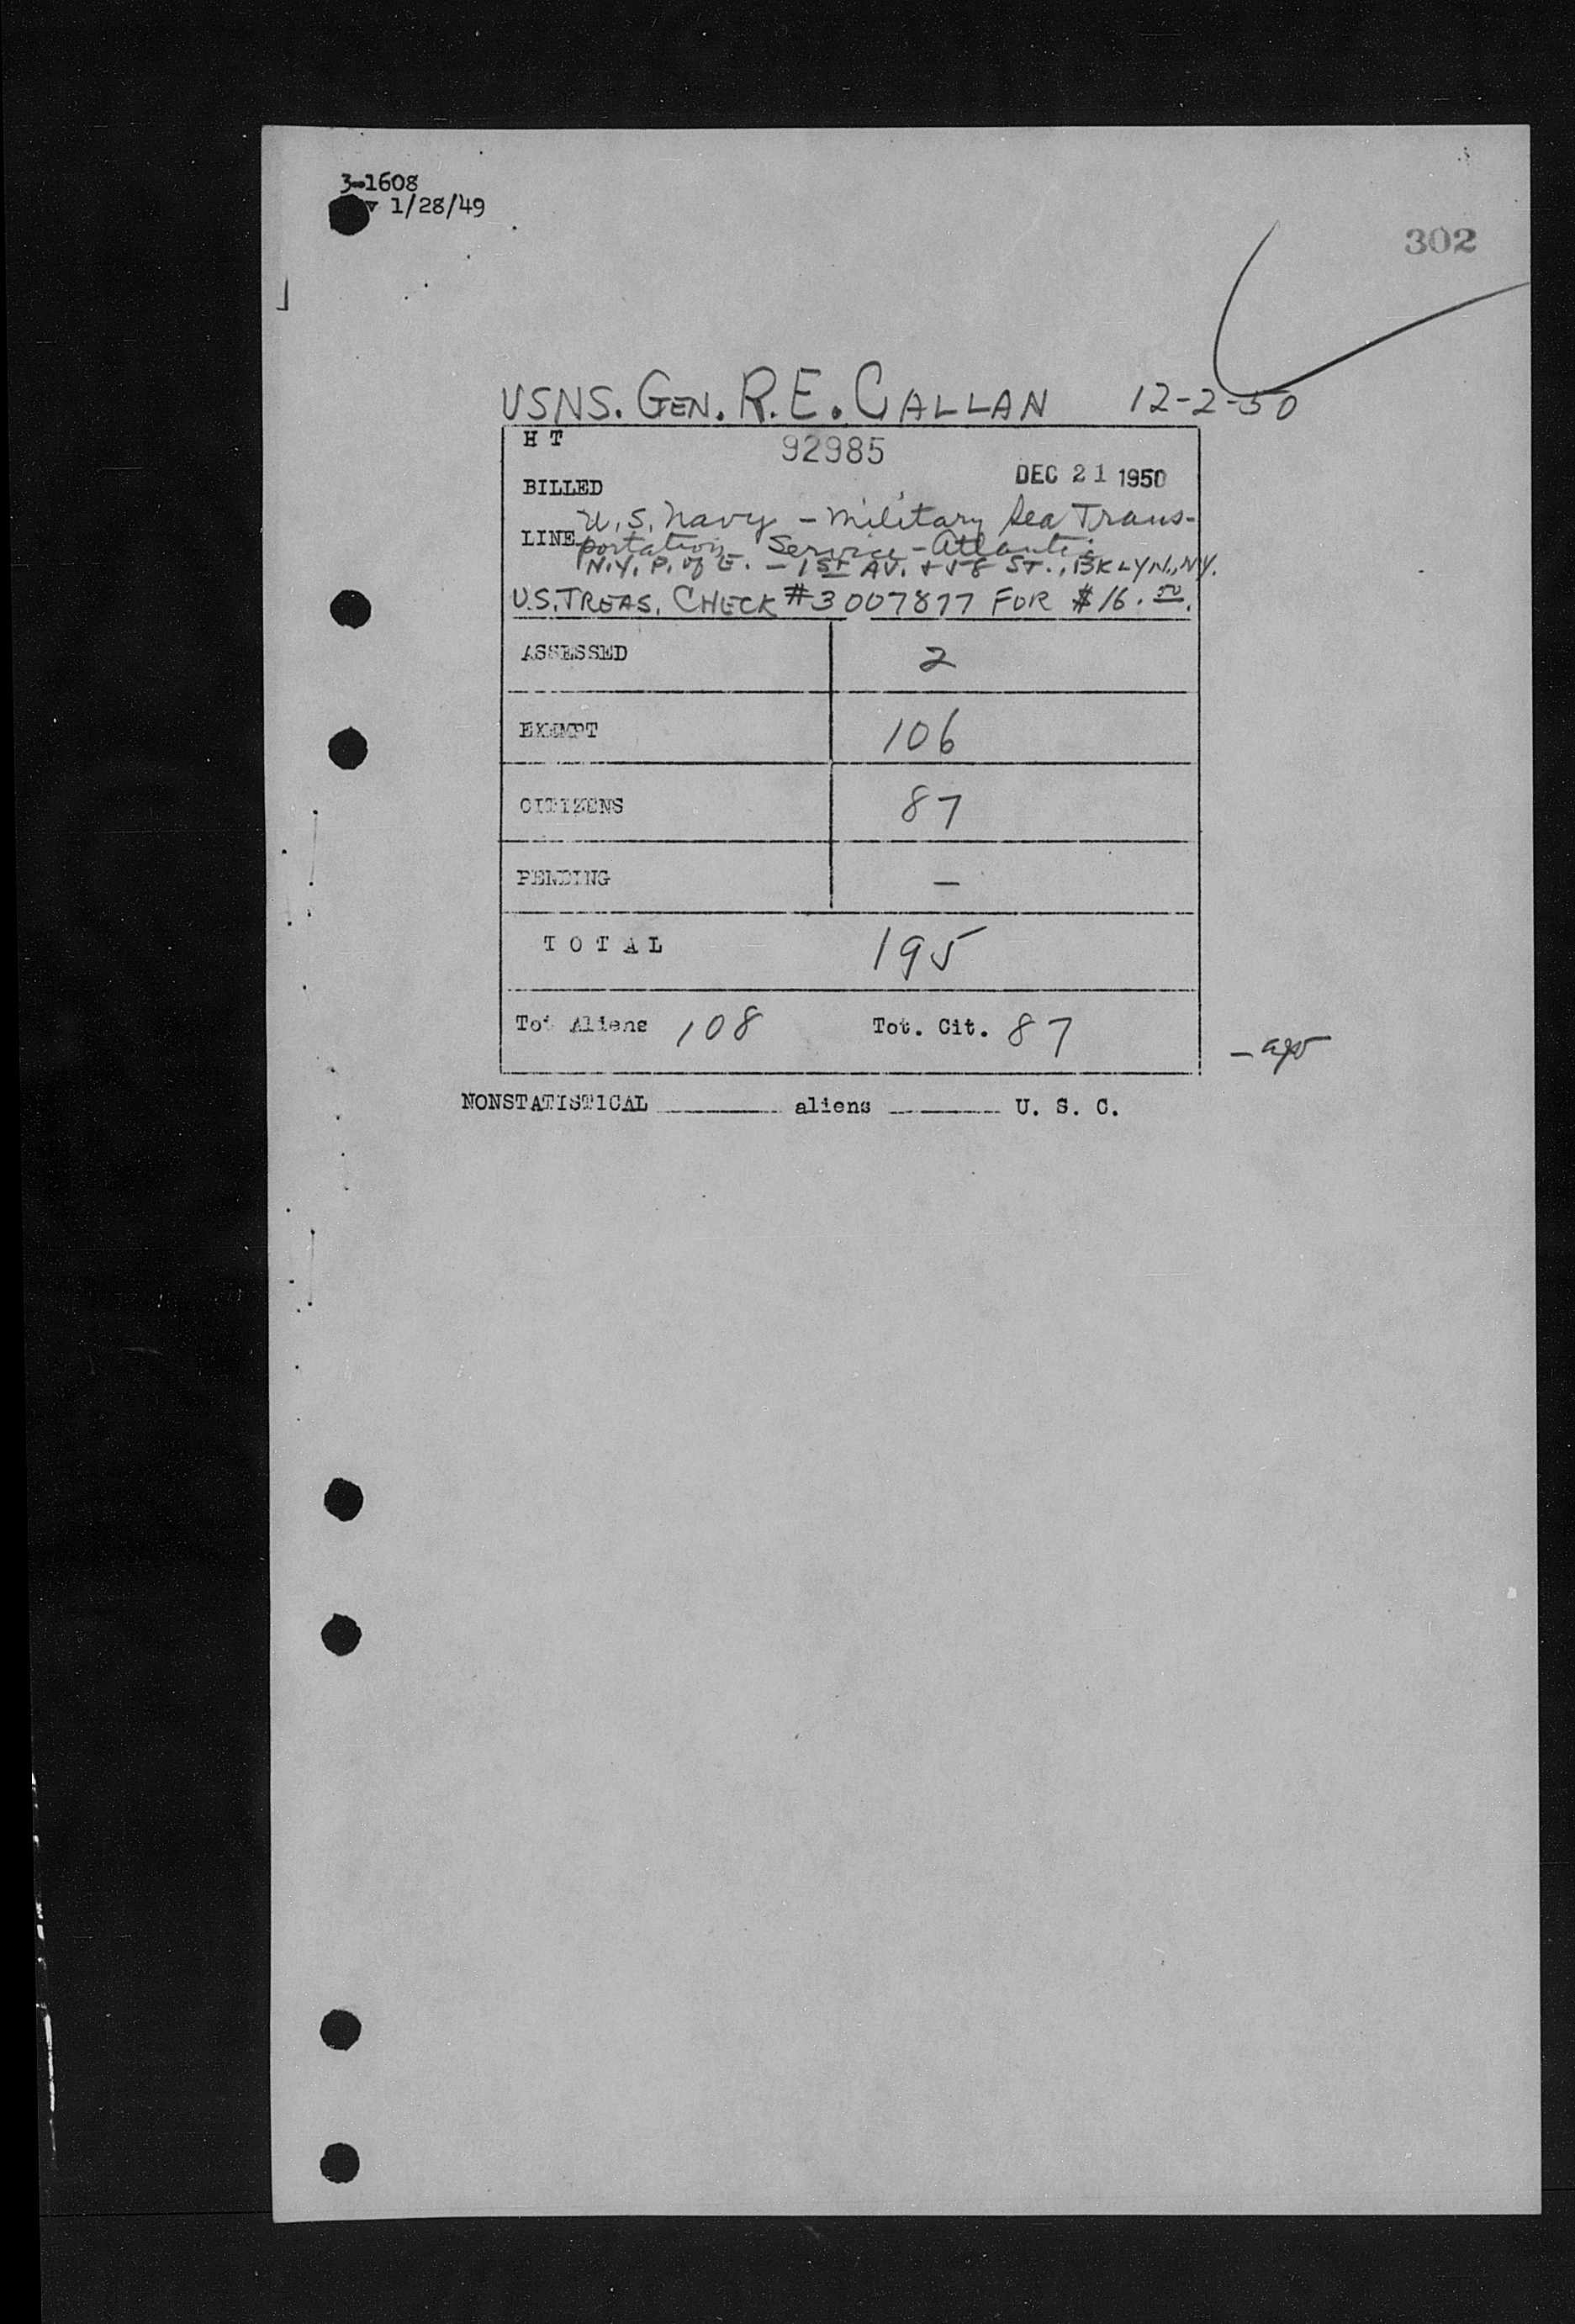 3-1608
1/28/49
302
USNS. GEN. R.E. CALLAN 12-2-50
H T 92985
BILLED DEC 21 1950
LINE U.S. Navy - Military Sea Trans-
portation Service - Atlantic
N.Y. P. of E. - 1ST AV. + 58 ST., BKLYN, NY.
U.S. TREAS. CHECK #3007877 FOR $16.00.
ASSESSED 2
EXEMPT 106
CITIZENS 87
PENDING —
TOTAL 195
Tot Aliens 108 Tot. Cit. 87
NONSTATISTICAL ______ aliens ______ U. S. C.